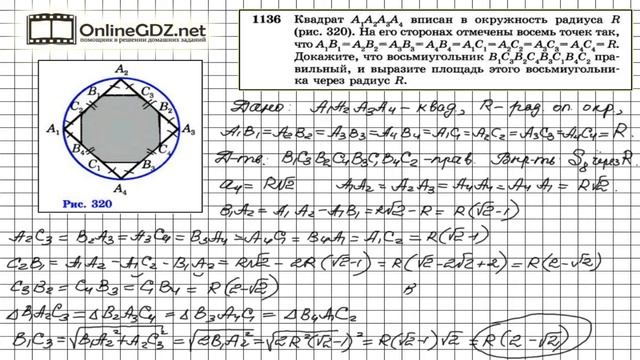 OnlineGDZ.net
помощник в решении домашних заданий
1136 Квадрат A₁A₂A₃A₄ вписан в окружность радиуса R
(рис. 320). На его сторонах отмечены восемь точек так,
что A₁B₁ = A₂B₂ = A₃B₃ = A₄B₄ = A₁C₁ = A₂C₂ = A₃C₃ = A₄C₄ = R.
Докажите, что восьмиугольник B₁C₃B₂C₄B₃C₁B₄C₂ пра-
вильный, и выразите площадь этого восьмиугольни-
ка через радиус R.
A₂
B₁ C₃
C₂ B₂
A₁ A₃
B₄ C₄
C₁ B₃
A₄
Рис. 320
Дано: A₁A₂A₃A₄ - квад, R - рад. оп. окр,
A₁B₁ = A₂B₂ = A₃B₃ = A₄B₄ = A₁C₁ = A₂C₂ = A₃C₃ = A₄C₄ = R.
Д-ть: B₁C₃B₂C₄B₃C₁B₄C₂ - прав. S₈ через R.
a₄ = R√2 A₁A₂ = A₂A₃ = A₃A₄ = A₄A₁ = R√2.
B₁A₂ = A₁A₂ - A₁B₁ = R√2 - R = R(√2-1)
A₂C₃ = B₂A₃ = A₃C₄ = B₃A₄ = A₄C₁ = B₄A₁ = A₁C₂ = R(√2-1)
C₂B₁ = A₁A₂ - A₁C₂ - B₁A₂ = R√2 - 2R(√2-1) = R(√2-2√2+2) = R(2-√2)
C₃B₂ = C₄B₃ = C₁B₄ = R(2-√2)
△B₁A₂C₃ = △B₂A₃C₄ = △B₃A₄C₁ = △B₄A₁C₂
B₁C₃ = √B₁A₂² + A₂C₃² = √2B₁A₂² = √2R²(√2-1)² = R(√2-1)√2 = R(2-√2)